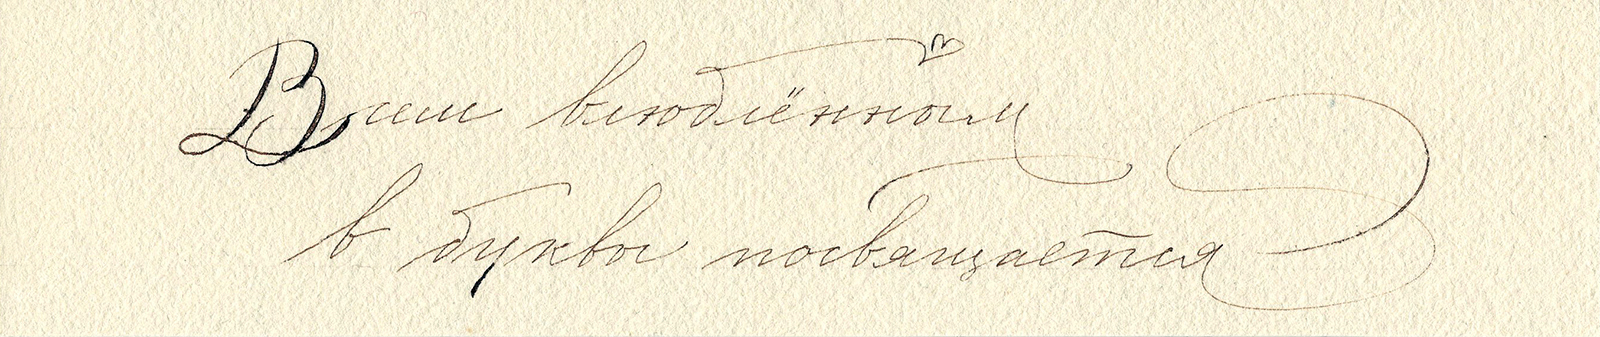 Всем влюблённым
в буквы посвящается